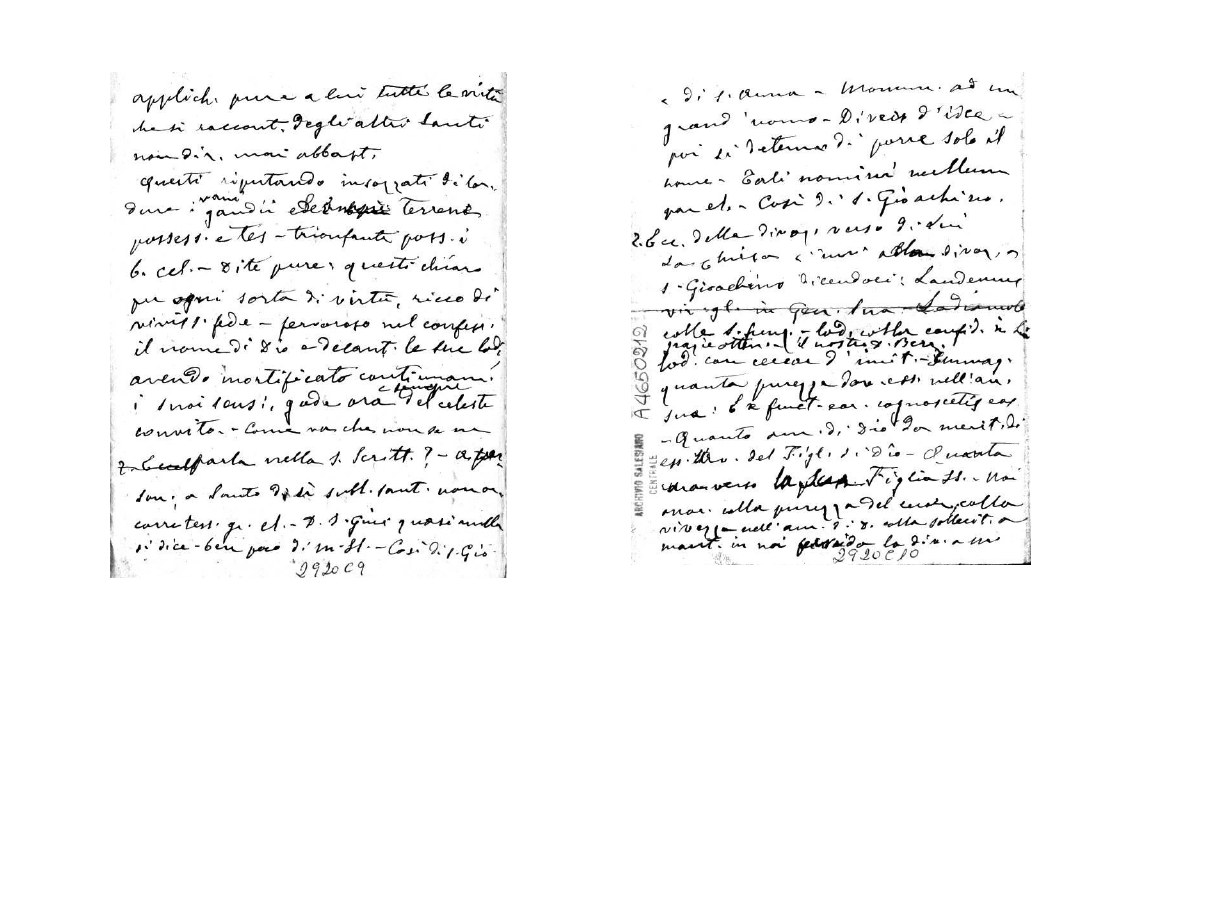 applich. pure a lui tutte le virtù
che si raccont. degli altri Santi
non dir. mai abbast.
Questi riputando insozzati di lor-
dura i vani gaudii e terrene
possess. e tes - trionfante poss. i
b. cel. - Dite pure: questi chiaro
per ogni sorta di virtù, ricco di
viviss. fede - fervoroso nel confess.
il nome di Dio e decant. le sue lod,
avendo mortificato continuam.
i suoi sensi, gode ora e sempre del celeste
convito. - Come va che non se ne
parla nella S. Scritt.? - a
son; a Santo di sì subl. sant. non
corrtess. gr. el. - D. S. Gius quasi nulla
si dice - ben poco di M. SS. - Così di S. Gio-
2920C9
e di S. Anna - Monum. ad un
grand'uomo - Divers d'idee -
poi si determ di porre solo il
nome - Tali nomini nullum
par el. - Così di S. Gioachino.
2. Ecc. della divoz. verso di Lui
La Chiesa c'inv alla divoz, a
S. Gioachino dicendoci: Laudemus
vir. gl. in Gen. sua
colle S. funz. - lod, colla confid. in
grazie otten. - il nostro D. Berr.
lod. con cercar d'imit. - Immag.
quanta purezza dov. ess. nell'an.
sua: Ex fruct. eor. cognoscetis eos
- Quanto am. di Dio da merit. di
ess. Avo. del Figl. di Dio - Quanta
verso Figlia SS. - Noi
onor. colla purezza del cuore, colla
vivezza nell'am. di D. colla sollecit. a
mant. in noi la div. a M
2920C10
A4650212
ARCHIVIO SALESIANO
CENTRALE